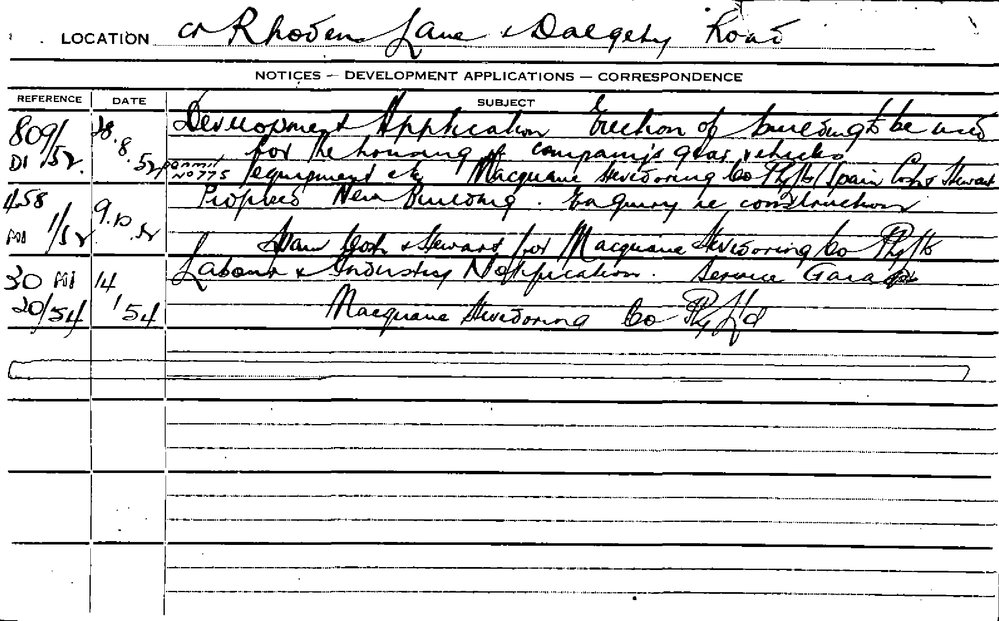 LOCATION cr Rhoden Lane & Dalgety Road
NOTICES — DEVELOPMENT APPLICATIONS — CORRESPONDENCE
REFERENCE DATE SUBJECT
809/52 28.8.52 Development Application Erection of building to be used
DA for the housing of company's gear, vehicles
permit No 775 equipment etc Macquarie Stevedoring Co Pty Ltd / Spain Cosh & Stewart
458 1/52 9.10.52 Proposed New Building. Enquiry re construction
Spain Cosh & Stewart for Macquarie Stevedoring Co Pty Ltd
30 20/54 14 1 54 Labour & Industry Notification. Service Garage
Macquarie Stevedoring Co Pty Ltd